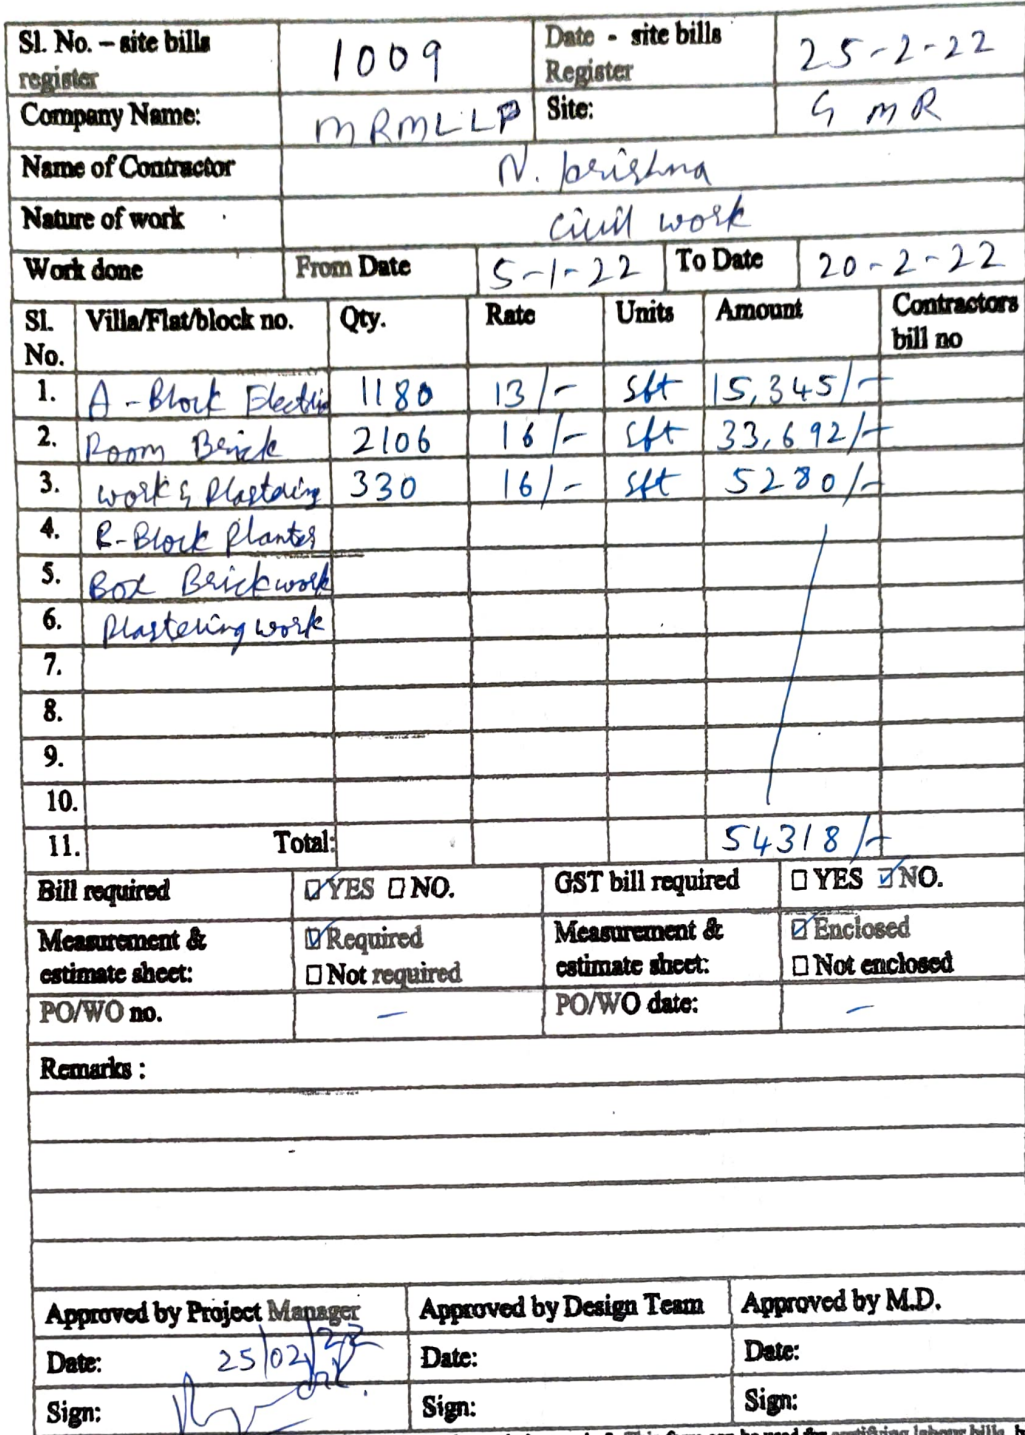 Sl. No. – site bills register 1009 Date - site bills Register 25-2-22
Company Name: MRMLLP Site: GMR
Name of Contractor N. krishna
Nature of work civil work
Work done From Date 5-1-22 To Date 20-2-22
Sl. No. Villa/Flat/block no. Qty. Rate Units Amount Contractors bill no
1. A-Block Electric 1180 13/- sft 15,345/-
2. Room Brick 2106 16/- sft 33,692/-
3. work & Plastering 330 16/- sft 5280/-
4. R-Block Planter
5. Box Brickwork
6. Plastering work
7.
8.
9.
10.
11. Total: 54318/-
Bill required ☑ YES ☐ NO. GST bill required ☐ YES ☑ NO.
Measurement & estimate sheet: ☑ Required ☐ Not required Measurement & estimate sheet: ☑ Enclosed ☐ Not enclosed
PO/WO no. – PO/WO date: –
Remarks :
Approved by Project Manager Approved by Design Team Approved by M.D.
Date: 25/02/22 Date: Date:
Sign: Sign: Sign: